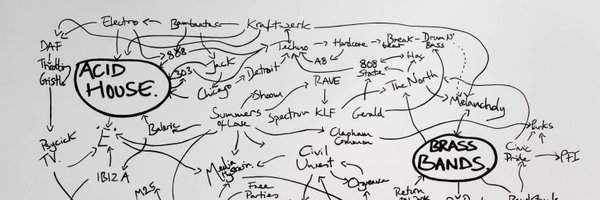 Electro
Bambaataa
Kraftwerk
DAF
Throbbing
Gristle
808
303
Jack
Chicago
Detroit
Techno
Hardcore
Break
beat
Drum N'
Bass
A8
RAVE
808
State
Hac
The North
Melancholy
ACID
HOUSE.
Shoom
Summers
of Love
Spectrum
KLF
Gerald
Clapham
Common
Psychick
TV.
E.
Balearic
IBIZA
M25
Media
Hysteria
Free
Parties
Civil
Unrest
Orgreave
BRASS
BANDS.
Civic
Pride
Parks
PFI
Return